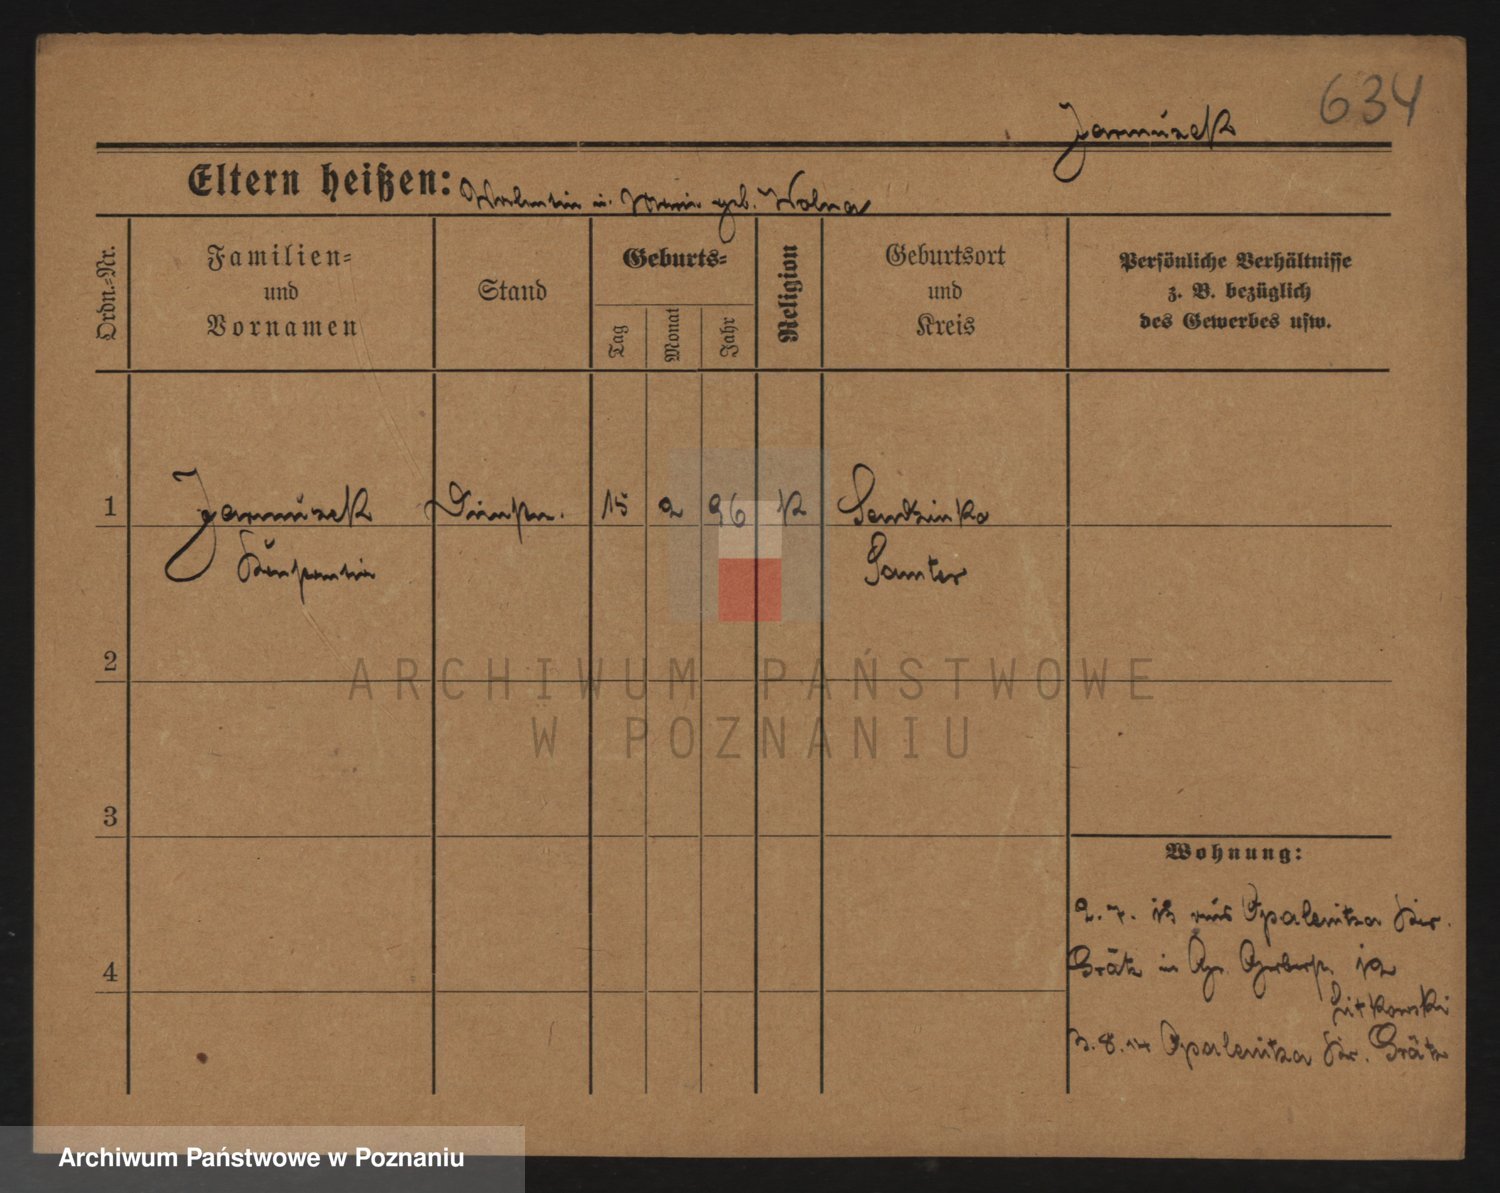 634
Jarmuzek
Eltern heißen: Valentin u. Marie geb. Wolna
Ordn.-Nr.
Familien-
und
Vornamen
Stand
Geburts-
Tag
Monat
Jahr
Religion
Geburtsort
und
Kreis
Persönliche Verhältnisse
z. B. bezüglich
des Gewerbes usw.
1 Jarmuzek 15 2 96 K
Samter
2
ARCHIWUM PAŃSTWOWE
W POZNANIU
3
Wohnung:
2. 7. 13 aus Opalenitza Kr.
4
Grätz in Gr. Gerberstr. 12
Litkowski
3. 8. 14 Opalenitza Kr. Grätz
Archiwum Państwowe w Poznaniu